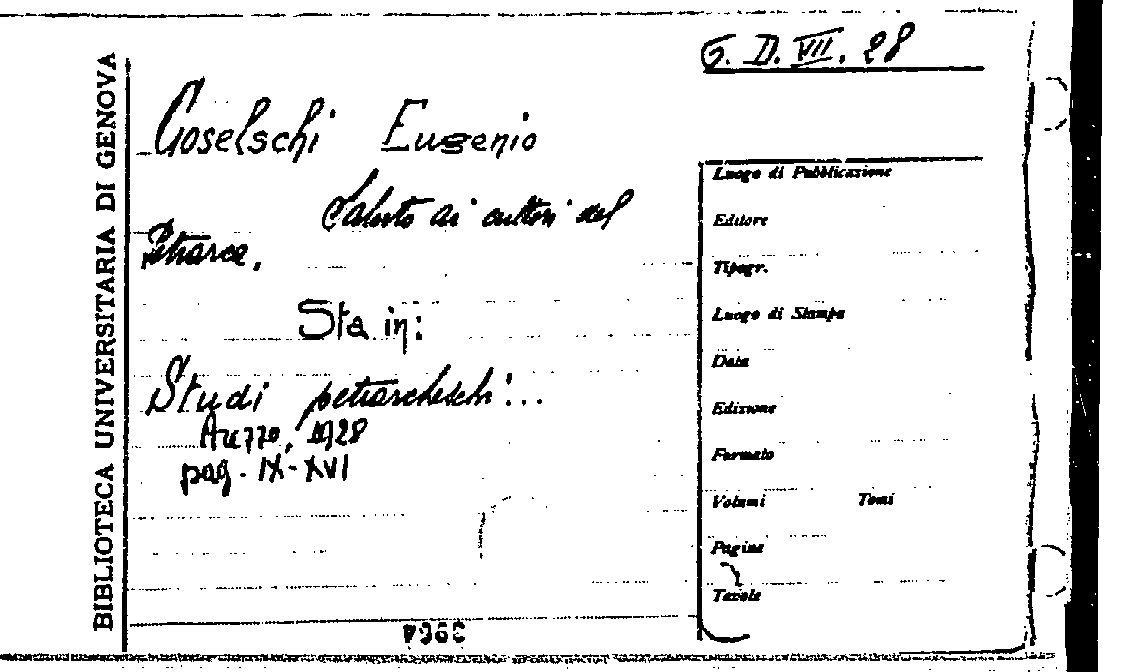 G. D. VII. 28
BIBLIOTECA UNIVERSITARIA DI GENOVA
Goselschi Eugenio
Saluto ai cultori del
Petrarca.
Sta in:
Studi petrarcheschi...
Arezzo, 1928
pag. IX-XVI
Luogo di Pubblicazione
Editore
Tipogr.
Luogo di Stampa
Data
Edizione
Formato
Volumi Tomi
Pagine
Tavole